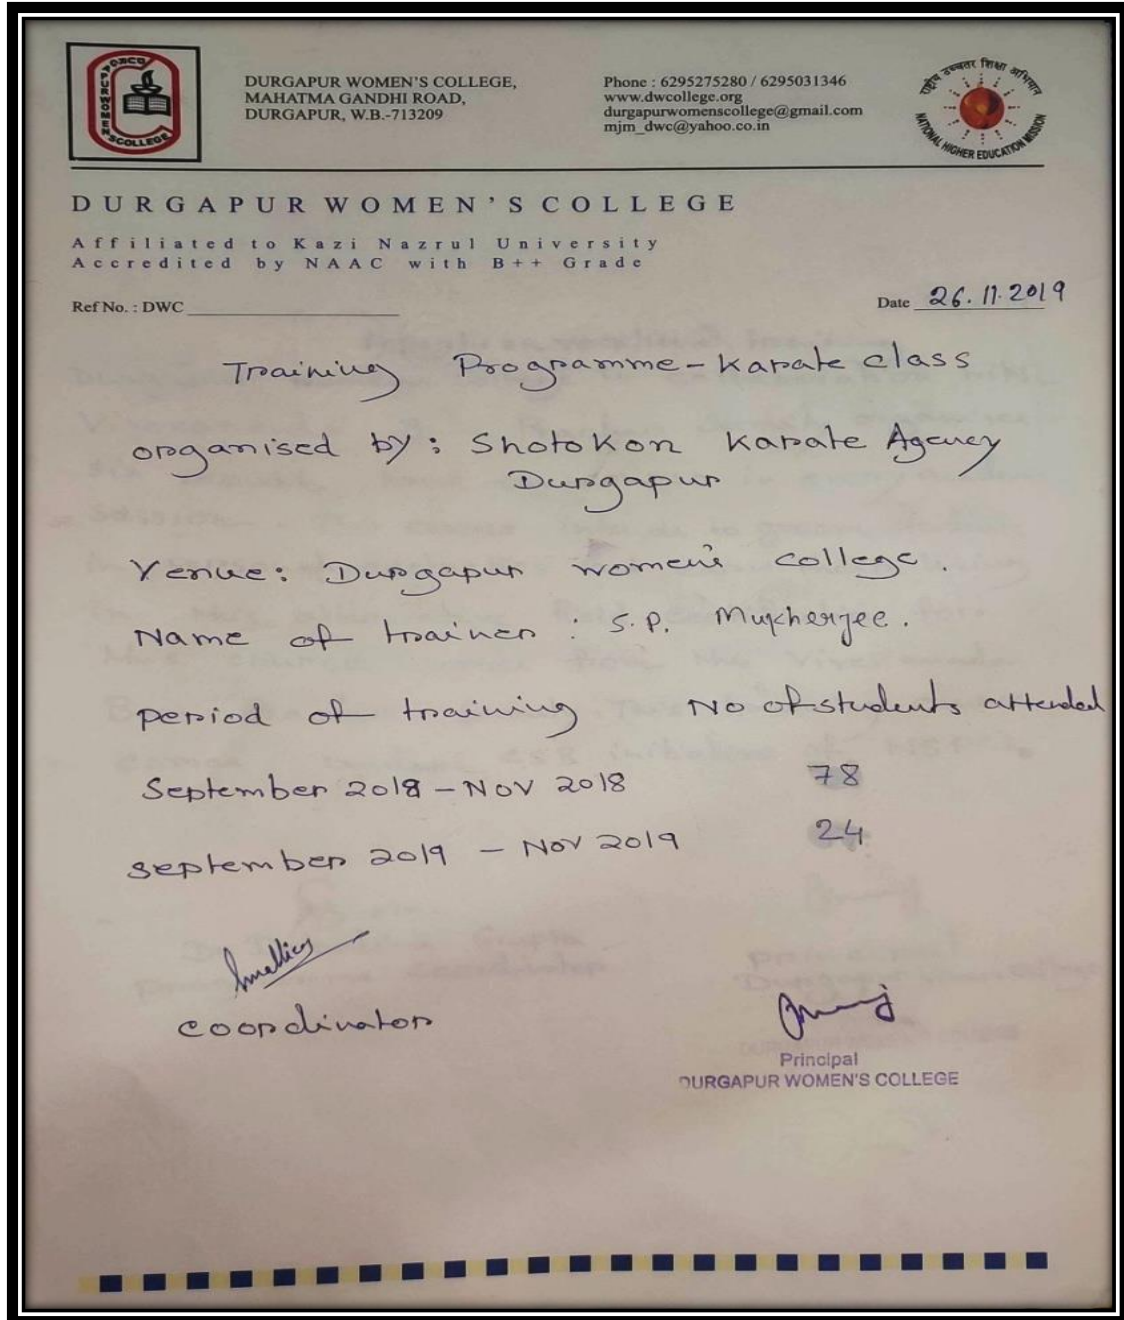 DURGAPUR WOMEN'S COLLEGE
DURGAPUR WOMEN'S COLLEGE,
MAHATMA GANDHI ROAD,
DURGAPUR, W.B.-713209
Phone : 6295275280 / 6295031346
www.dwcollege.org
durgapurwomenscollege@gmail.com
mjm_dwc@yahoo.co.in
राष्ट्रीय उच्चतर शिक्षा अभियान
NATIONAL HIGHER EDUCATION MISSION
DURGAPUR WOMEN'S COLLEGE
Affiliated to Kazi Nazrul University
Accredited by NAAC with B++ Grade
Ref No. : DWC
Date 26.11.2019
Training Programme - Karate class
organised by : Shotokon Karate Agency
Durgapur
Venue: Durgapur women's college.
Name of trainer : S.P. Mukherjee.
period of training No of students attended
September 2018 - Nov 2018 78
September 2019 - Nov 2019 24
coordinator
Principal
DURGAPUR WOMEN'S COLLEGE